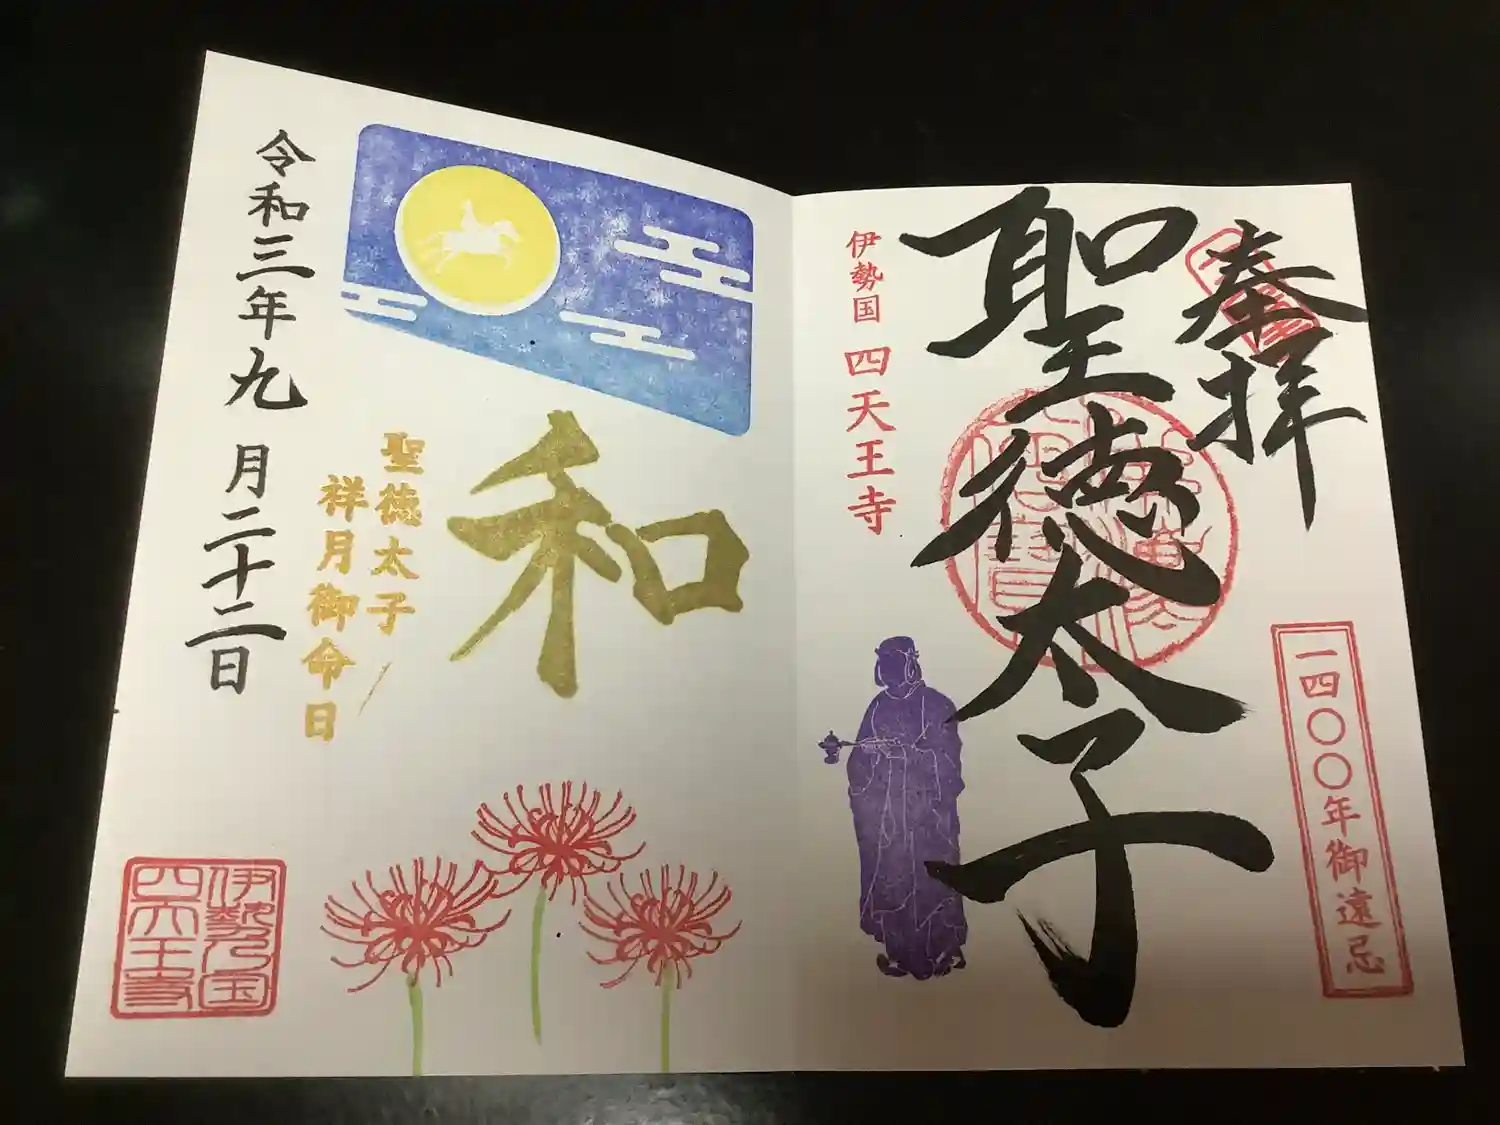 奉拝
一四〇〇年御遠忌
聖徳太子
伊勢国 四天王寺
和
聖徳太子
祥月御命日
令和三年九月二十二日
伊勢乃国
四天王寺